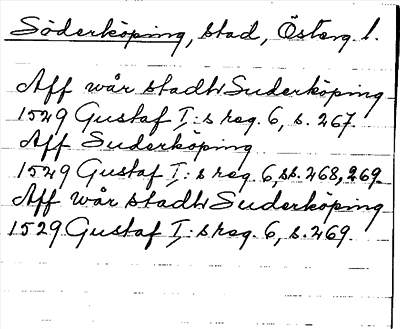 Söderköping, stad, Österg. l.
Aff wår stadh Suderköping
1529 Gustaf I:s reg. 6, s. 267.
Aff Suderköping
1529 Gustaf I:s reg. 6, ss. 268, 269.
Aff wår stadh Suderköping
1529 Gustaf I:s reg. 6, s. 269.